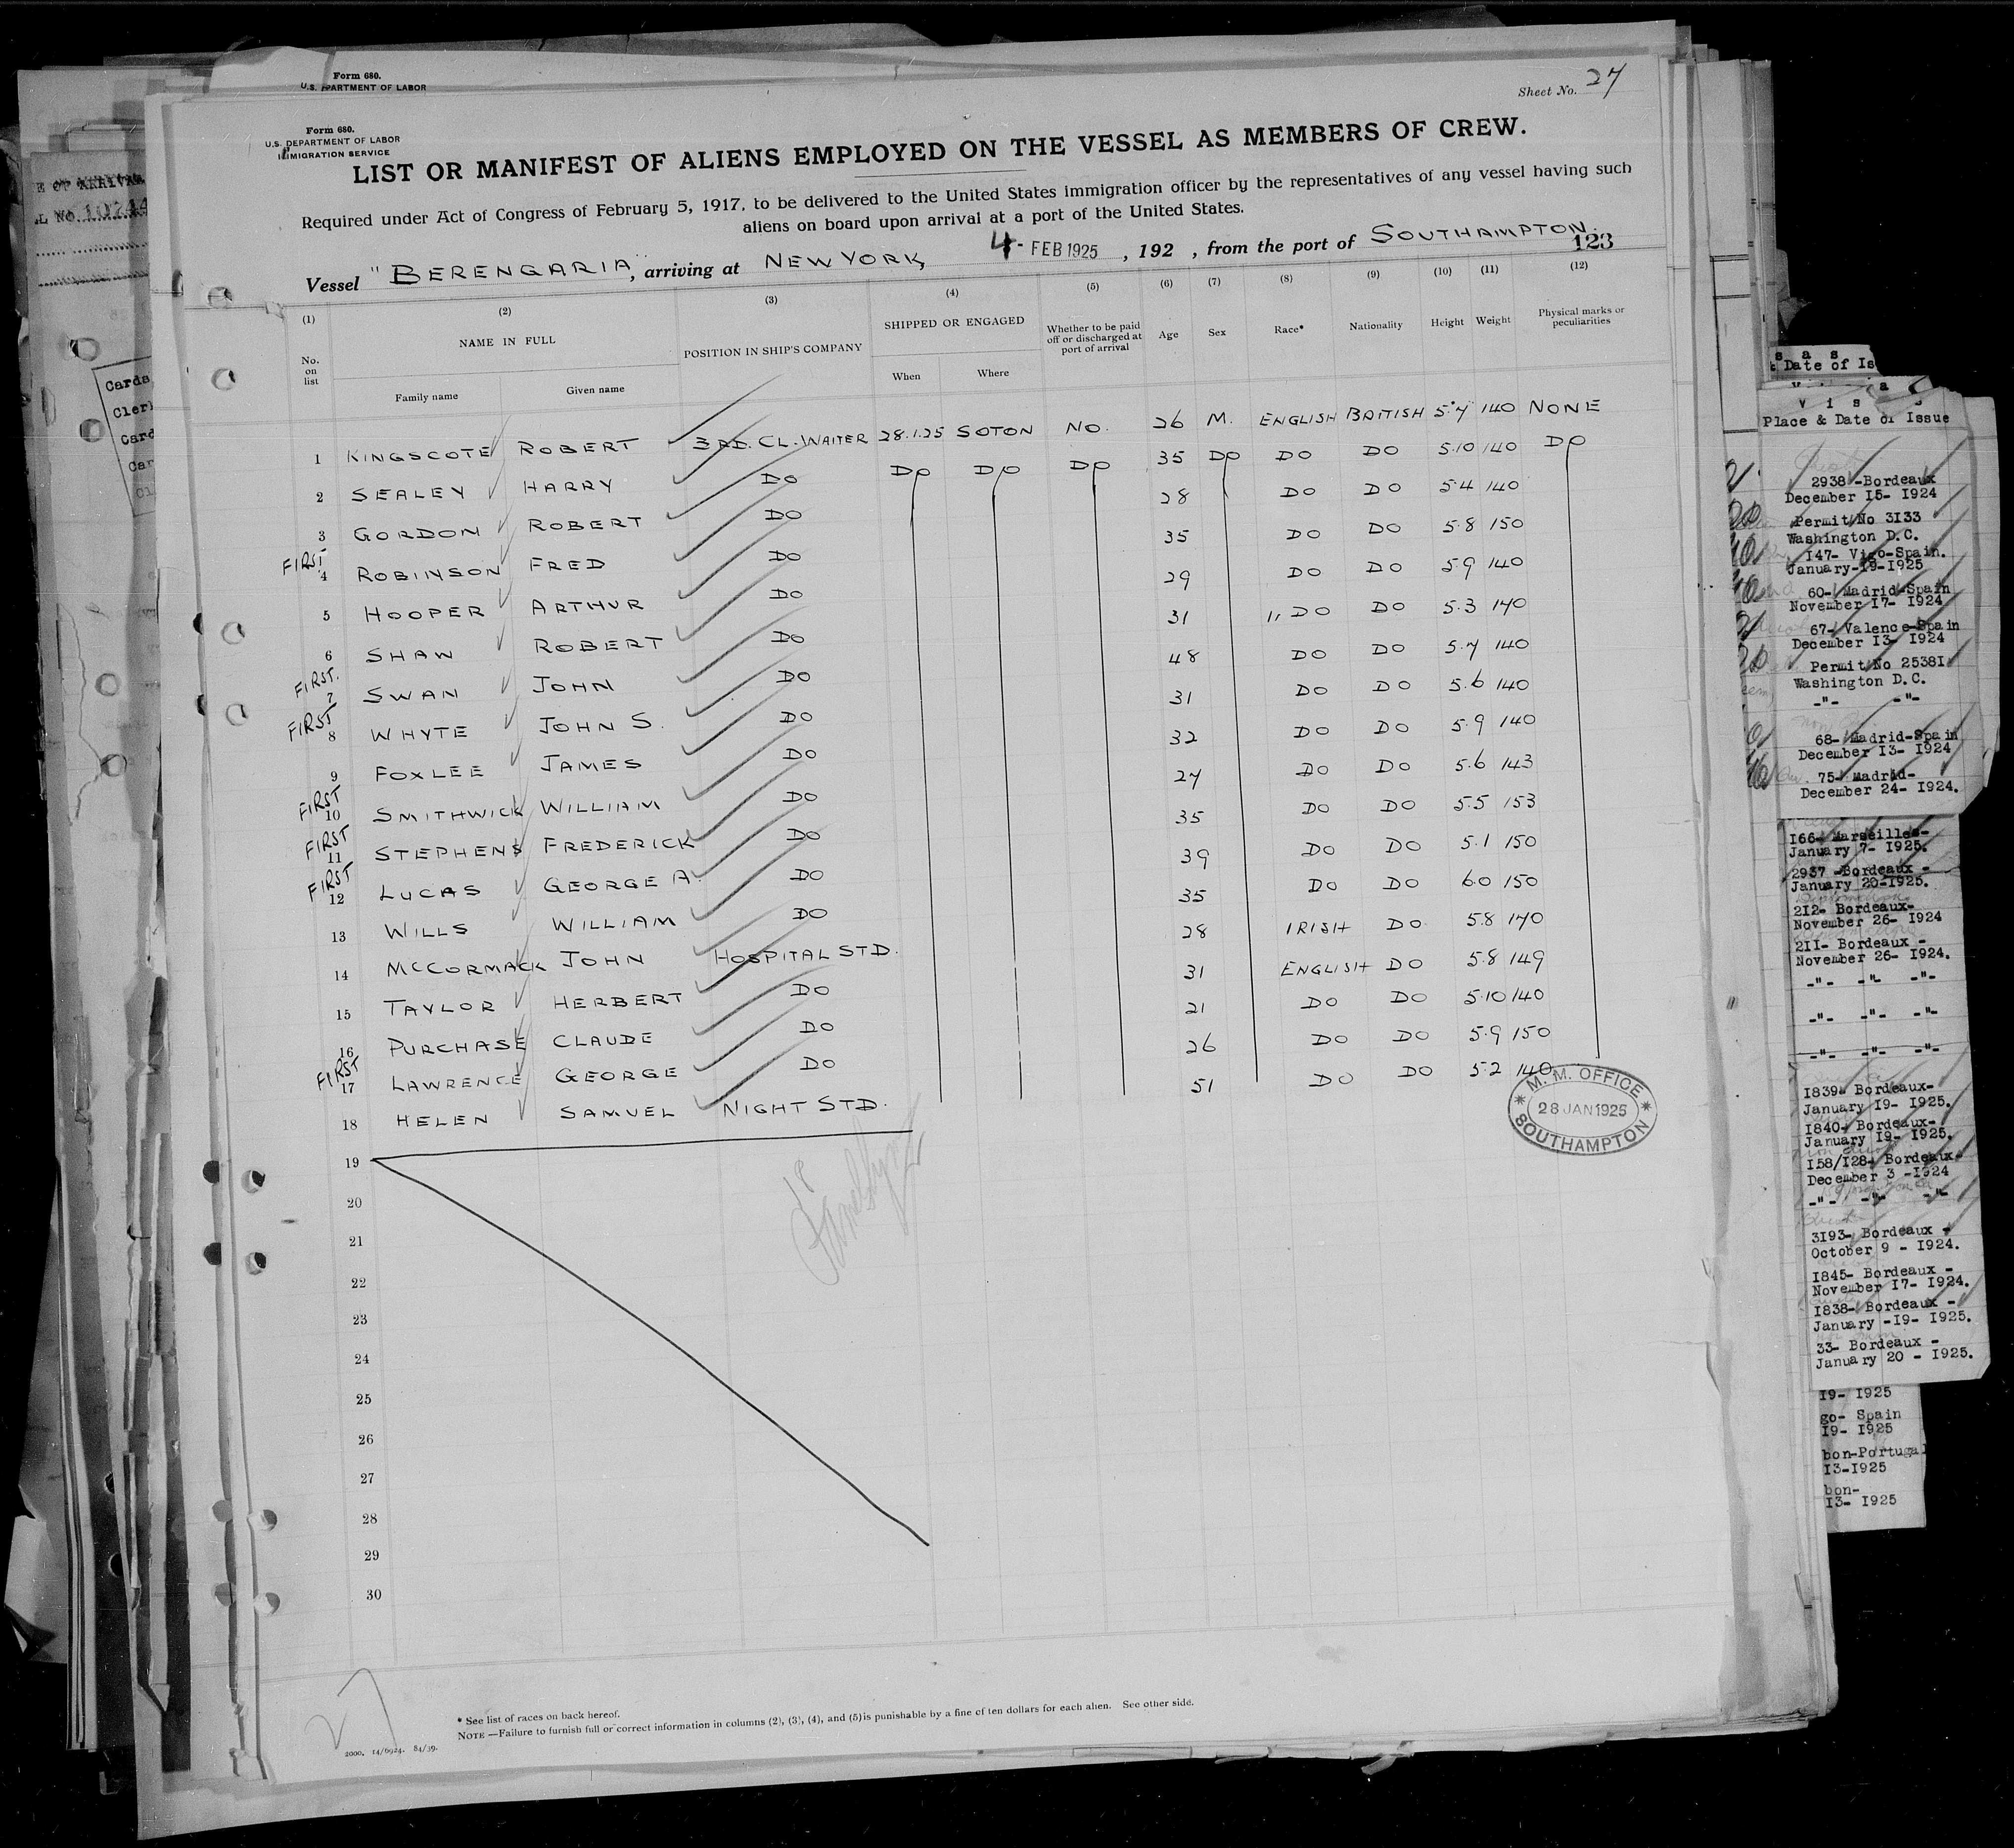 Form 680.
U.S. DEPARTMENT OF LABOR
Sheet No. 27
Form 680.
U.S. DEPARTMENT OF LABOR
IMMIGRATION SERVICE
LIST OR MANIFEST OF ALIENS EMPLOYED ON THE VESSEL AS MEMBERS OF CREW.
Required under Act of Congress of February 5, 1917, to be delivered to the United States immigration officer by the representatives of any vessel having such
aliens on board upon arrival at a port of the United States.
Vessel "BERENGARIA", arriving at NEW YORK, 4- FEB 1925, 192 , from the port of SOUTHAMPTON.
123
(1) (2) (3) (4) (5) (6) (7) (8) (9) (10) (11) (12)
No. on list NAME IN FULL POSITION IN SHIP'S COMPANY SHIPPED OR ENGAGED Whether to be paid off or discharged at port of arrival Age Sex Race* Nationality Height Weight Physical marks or peculiarities
Family name Given name When Where
1 KINGSCOTE ROBERT 3RD. CL. WAITER 28.1.25 SOTON NO. 26 M. ENGLISH BRITISH 5.7 140 NONE
2 SEALEY HARRY DO DO DO DO 35 DO DO DO 5.10 140 DO
3 GORDON ROBERT DO 28 DO DO 5.4 140
FIRST 4 ROBINSON FRED DO 35 DO DO 5.8 150
5 HOOPER ARTHUR DO 29 DO DO 5.9 140
6 SHAW ROBERT DO 31 ,, DO DO 5.3 140
FIRST. 7 SWAN JOHN DO 48 DO DO 5.7 140
FIRST 8 WHYTE JOHN S. DO 31 DO DO 5.6 140
9 FOXLEE JAMES DO 32 DO DO 5.9 140
FIRST 10 SMITHWICK WILLIAM DO 27 DO DO 5.6 143
FIRST 11 STEPHENS FREDERICK DO 35 DO DO 5.5 153
FIRST 12 LUCAS GEORGE A. DO 39 DO DO 5.1 150
13 WILLS WILLIAM DO 35 DO DO 6.0 150
14 MCCORMACK JOHN HOSPITAL STD. 28 IRISH DO 5.8 170
15 TAYLOR HERBERT DO 31 ENGLISH DO 5.8 149
16 PURCHASE CLAUDE DO 21 DO DO 5.10 140
FIRST 17 LAWRENCE GEORGE DO 26 DO DO 5.9 150
18 HELEN SAMUEL NIGHT STD. 51 DO DO 5.2 140
M. M. OFFICE
28 JAN 1925
SOUTHAMPTON
19
18
20
21
22
23
24
25
26
27
28
29
30
27
* See list of races on back hereof.
NOTE.—Failure to furnish full or correct information in columns (2), (3), (4), and (5) is punishable by a fine of ten dollars for each alien. See other side.
2000. 14/6924. 84/39.
E OF ARRIVAL
L NO. 10744
Carda
Cler
Card
Car
Cl
s a s
Date of Is
V i s
Place & Date of Issue
2938 -Bordeaux
December I5- I924
Permit No 3I33
Washington D.C.
I47- Vigo-Spain.
January-I9-I925
60- Madrid-Spain
November I7- I924
67- Valence-Spain
December I3- I924
Permit No 2538I
Washington D.C.
-"- -"-
68- Madrid-Spain
December I3- I924
75- Madrid-
December 24- I924.
I66- Marseilles-
January 7- I925.
2937 -Bordeaux -
January 20-I925.
2I2- Bordeaux-
November 26- I924
2II- Bordeaux -
November 26- I924.
-"- -"- -"-
-"- -"- -"-
-"- -"- -"-
I839- Bordeaux-
January I9- I925.
I840- Bordeaux-
January I9- I925.
I58/I28- Bordeaux-
December 3 -I924
-"- -"- -"-
3I93- Bordeaux -
October 9 - I924.
I845- Bordeaux -
November I7- I924.
I838- Bordeaux -
January -I9- I925.
33- Bordeaux -
January 20 - I925.
I9- I925
go- Spain
I9- I925
bon-Portugal
I3-I925
bon-
I3- I925